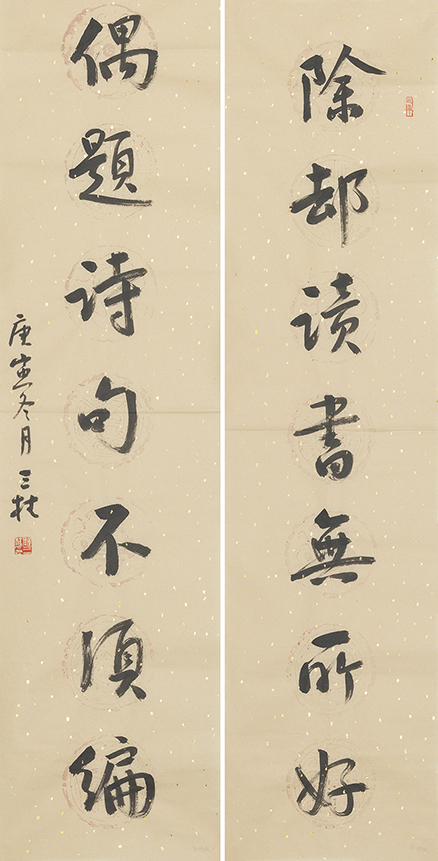 除却读書無所好
偶题诗句不須编
庚寅冬月 三